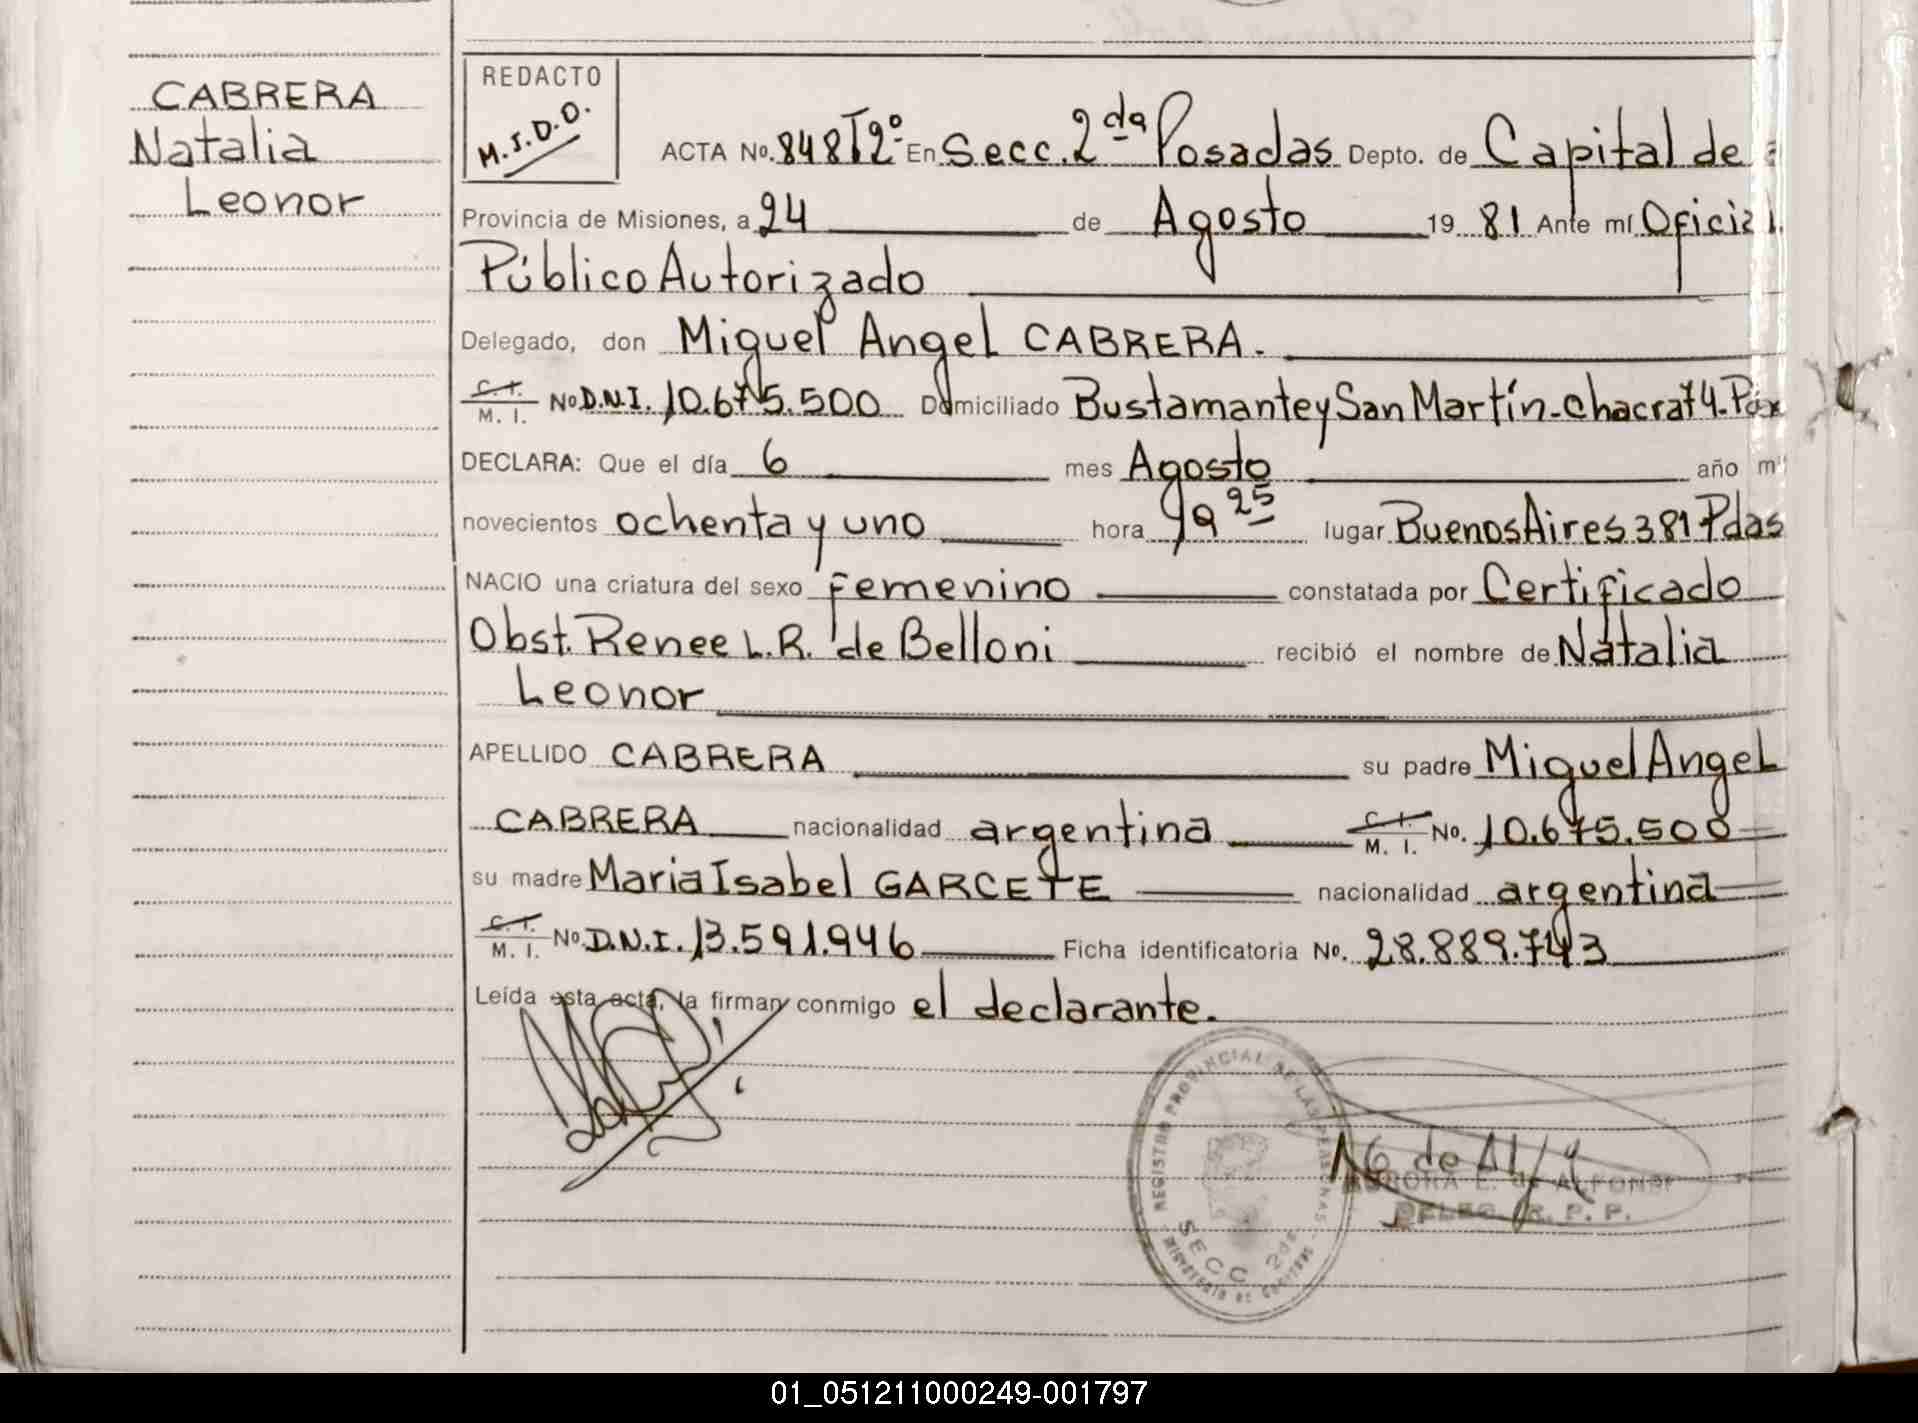 CABRERA
Natalia
Leonor
REDACTO
M.S.D.O.
ACTA No. 848 T2º En Secc. 2da Posadas Depto. de Capital de
Provincia de Misiones, a 24 de Agosto 19 81 Ante mí Oficial
Público Autorizado
Delegado, don Miguel Angel CABRERA.
C. I. / M. I. No D.N.I. 10.675.500 Domiciliado Bustamante y San Martín-Chacra 74-
DECLARA: Que el día 6 mes Agosto año m
novecientos ochenta y uno hora 19 25 lugar Buenos Aires 381 Pdas
NACIO una criatura del sexo femenino constatada por Certificado
Obst. Renee L.R. de Belloni recibió el nombre de Natalia
Leonor
APELLIDO CABRERA su padre Miguel Angel
CABRERA nacionalidad argentina C. I. / M. I. No. 10.675.500
su madre Maria Isabel GARCETE nacionalidad argentina
C. I. / M. I. No D.N.I. 13.591.946 Ficha identificatoria No. 28.889.743
Leída esta acta, la firman conmigo el declarante.
REGISTRO PROVINCIAL DE LAS PERSONAS
SECC 2da
MINISTERIO DE GOBIERNO
AURORA E. de ALFONSO
DELEG. R. P. P.
01_051211000249-001797